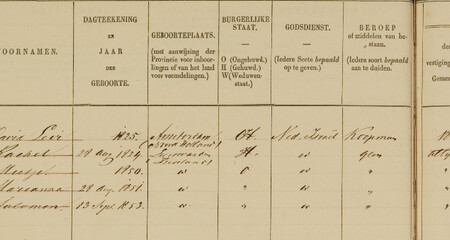 VOORNAMEN.
DAGTEEKENING
EN
JAAR
DER
GEBOORTE.
GEBOORTEPLAATS.
(met aanwijzing der
Provincie voor inboor-
lingen of van het land
voor vreemdelingen.)
BURGERLIJKE
STAAT.
O (Ongehuwd.)
H (Gehuwd.)
W (Weduwen-
staat.)
GODSDIENST.
(Iedere Secte bepaald
op te geven.)
BEROEP
of middelen van be-
staan.
(Iedere soort bepaald
aan te duiden.)
der
vestiging
Gemee
Levi 1825. Amsterdam H. Ned. Israel Koopman
(Noord Holland)
Rachel 28 aug 1824. Leeuwarden H. " geen
(Friesland)
1850. " O " "
Marianna 28 aug. 1851. " " " "
Salomon 13 Sept. 1853. " " " "